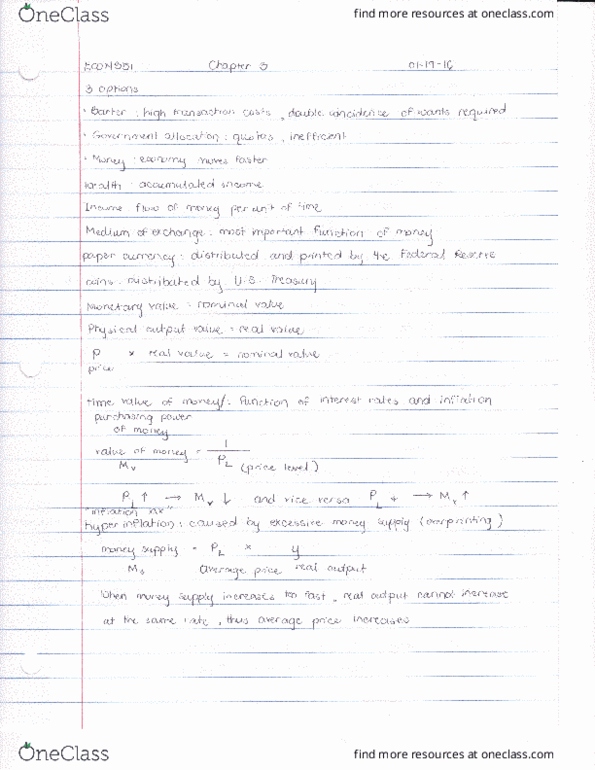 OneClass
find more resources at oneclass.com
ECON 331 Chapter 3 01-19-16
3 options
• Barter : high transaction costs , double coincidence of wants required
• Government allocation : quotas , inefficient
• Money : economy moves faster
Wealth : accumulated income
Income flow of money per unit of time
Medium of exchange : most important function of money
paper currency : distributed and printed by the Federal Reserve
coins : distributed by U.S. Treasury
Monetary value = nominal value
Physical output value = real value
P × real value = nominal value
price
time value of money/: function of interest rates and inflation
purchasing power
of money
value of money = 1
Mv PL (price level)
PL ↑ → Mv ↓ and vice versa PL ↓ → Mv ↑
"inflation
hyperinflation : caused by excessive money supply (overprinting)
money supply = PL × y
Ms average price real output
When money supply increases too fast , real output cannot increase
at the same rate , thus average price increases
OneClass
find more resources at oneclass.com